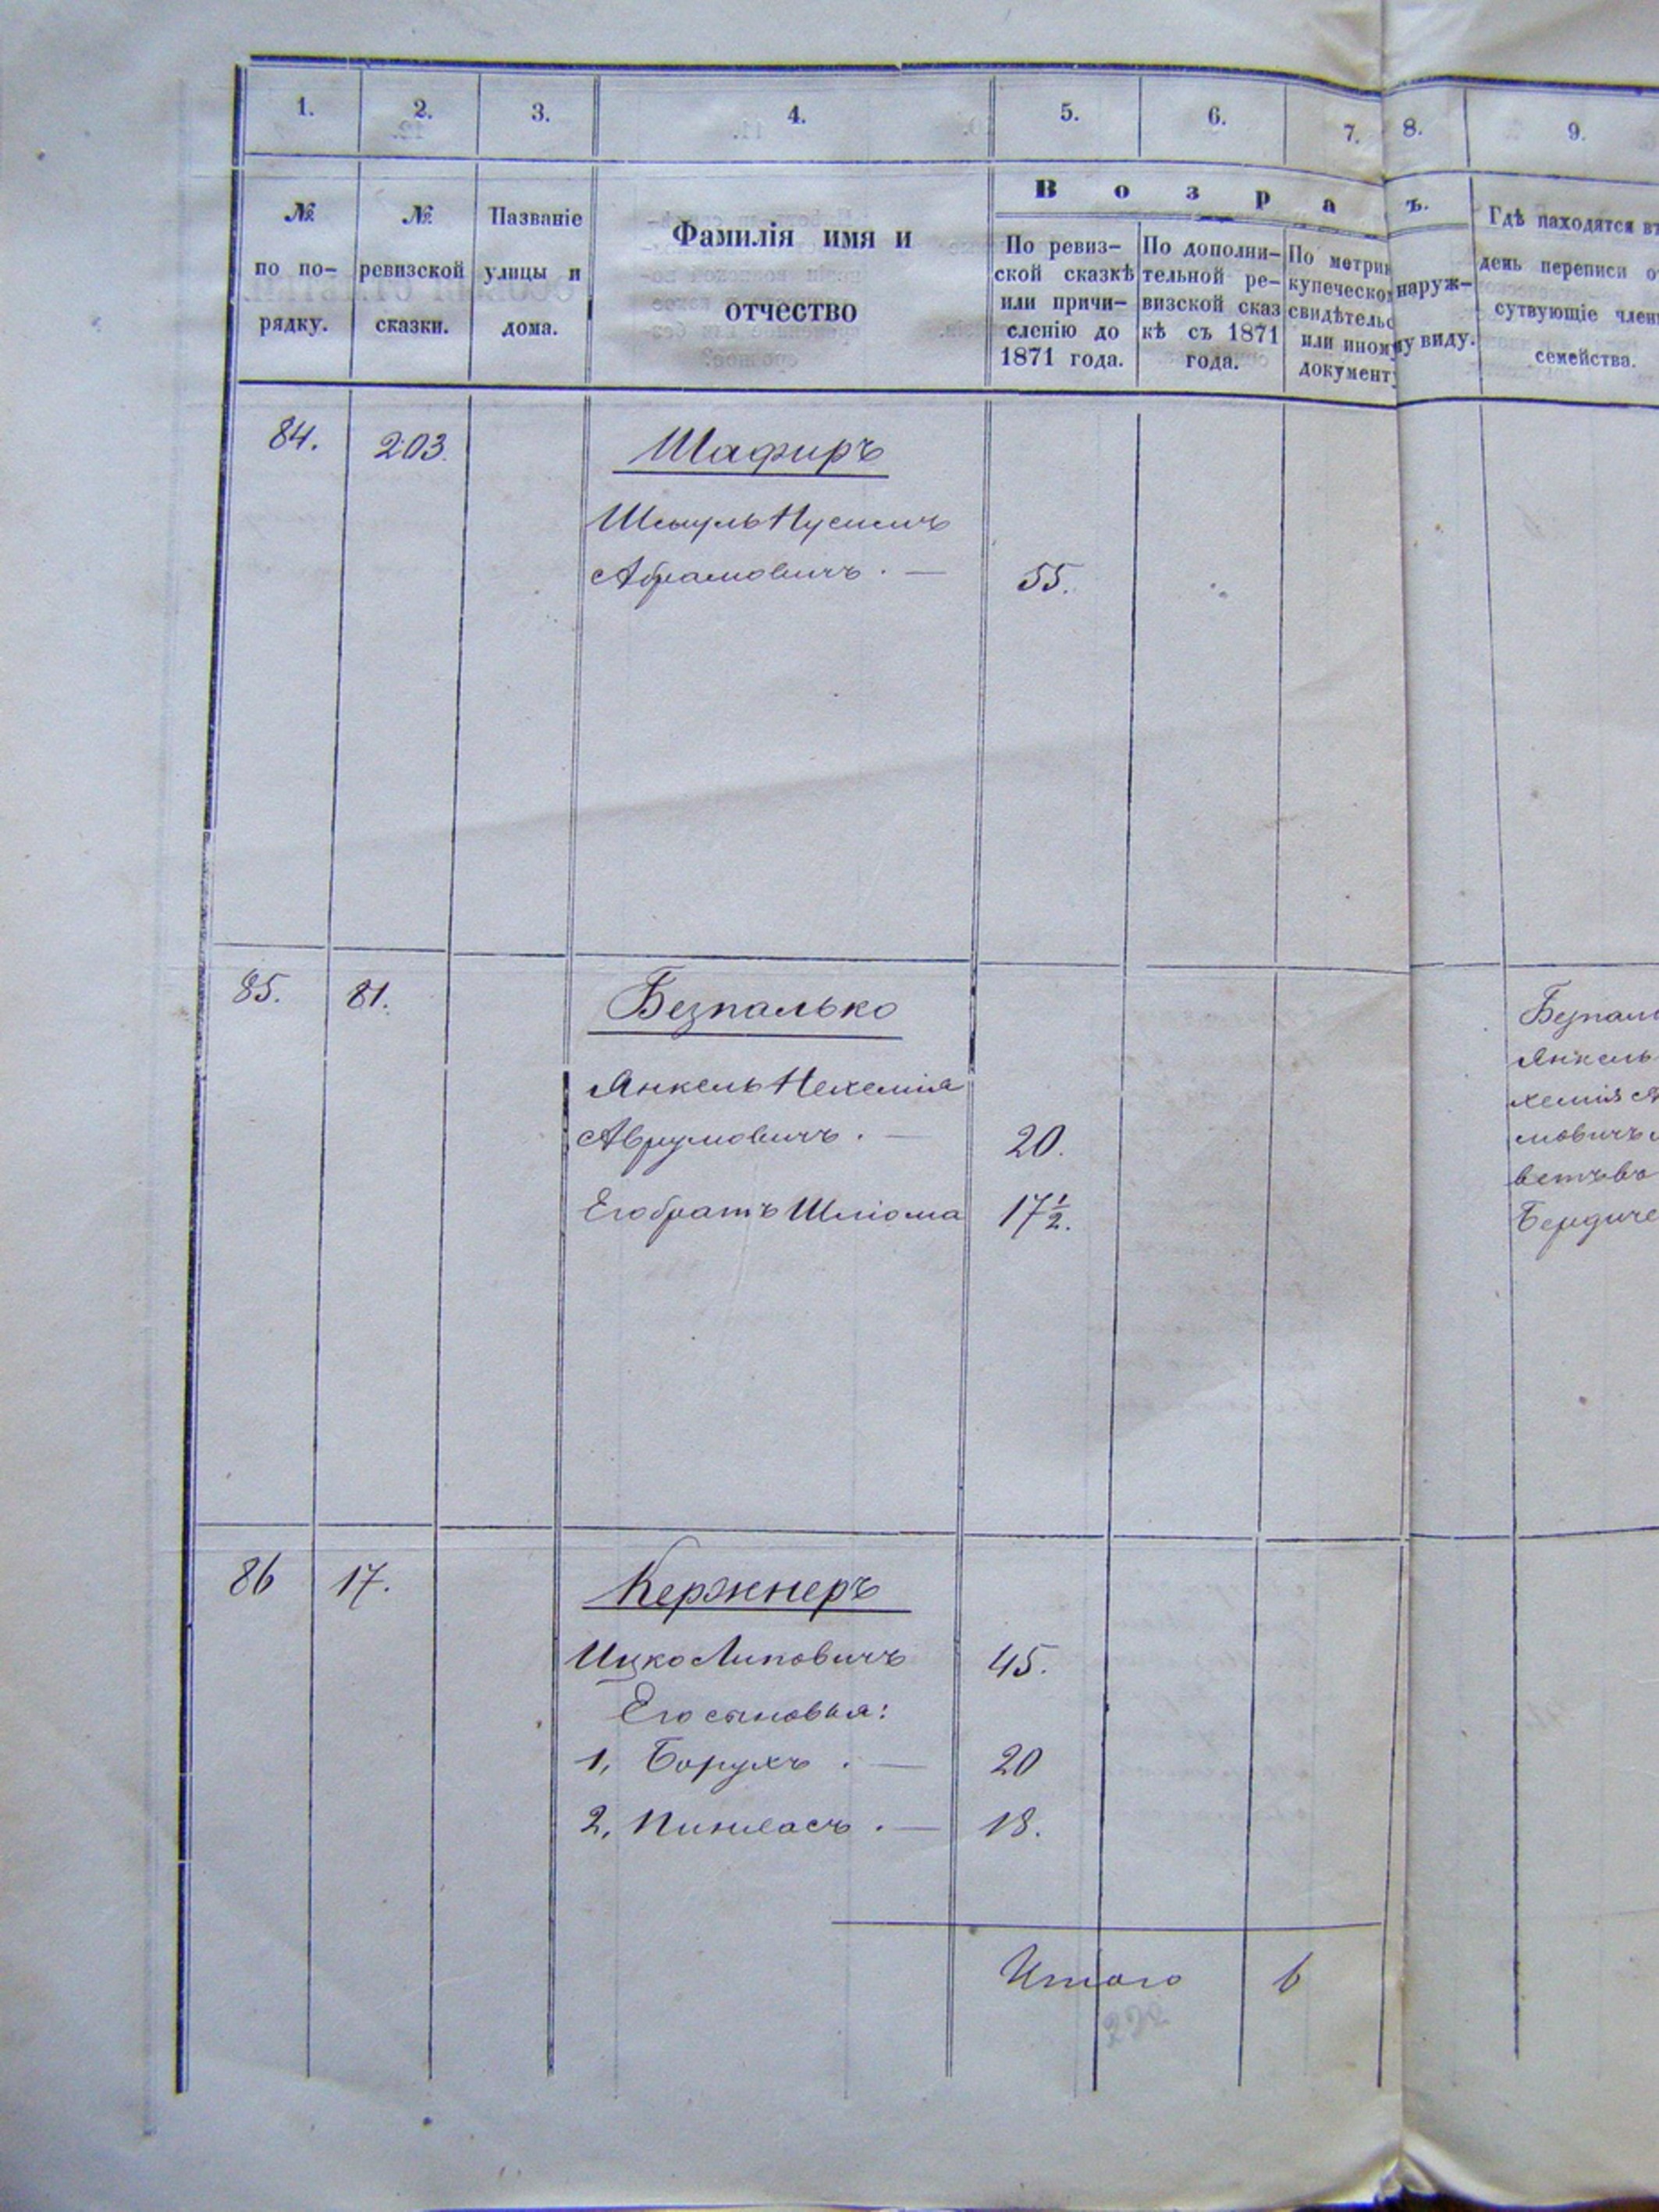 1. 2. 3. 4. 5. 6. 7. 8. 9.
В о з р а ъ.
№ по по- рядку.
№ ревизской сказки.
Названіе улицы и дома.
Фамилія имя и
отчество
По ревиз-
ской сказкѣ
или причи-
сленію до
1871 года.
По дополни-
тельной ре-
визской сказ
кѣ съ 1871
года.
По метрик
купеческом
свидѣтельс
или иному
документу
наруж-
у виду.
Гдѣ находятся въ
день переписи от
сутвующіе члены
семейства.
84. 203. Шафиръ
Шмуль Нусимъ
Абрамовичъ . — 55.
85. 81. Безпалько
Янкель Нехемія
Аврумовичъ . — 20.
Его братъ Шліома 17½.
Безпаль
Янкель
хемія А
мовичъ
ветъ въ
Бердиче
86 17. Кержнеръ
Ицко Липовичъ 45.
Его сыновья:
1, Борухъ . — 20
2, Пинхасъ . — 18.
Итого 6